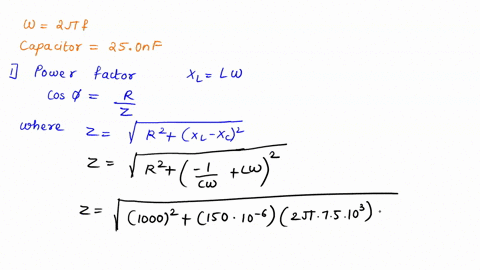 ω = 2πf
Capacitor = 25.0nF
1] Power factor X_L = Lω
cos φ = R/Z
where Z = √(R² + (X_L - X_C)²)
Z = √(R² + (-1/Cω + Lω)²)
Z = √((1000)² + (150 · 10⁻⁶) (2π · 7.5 · 10³) ·